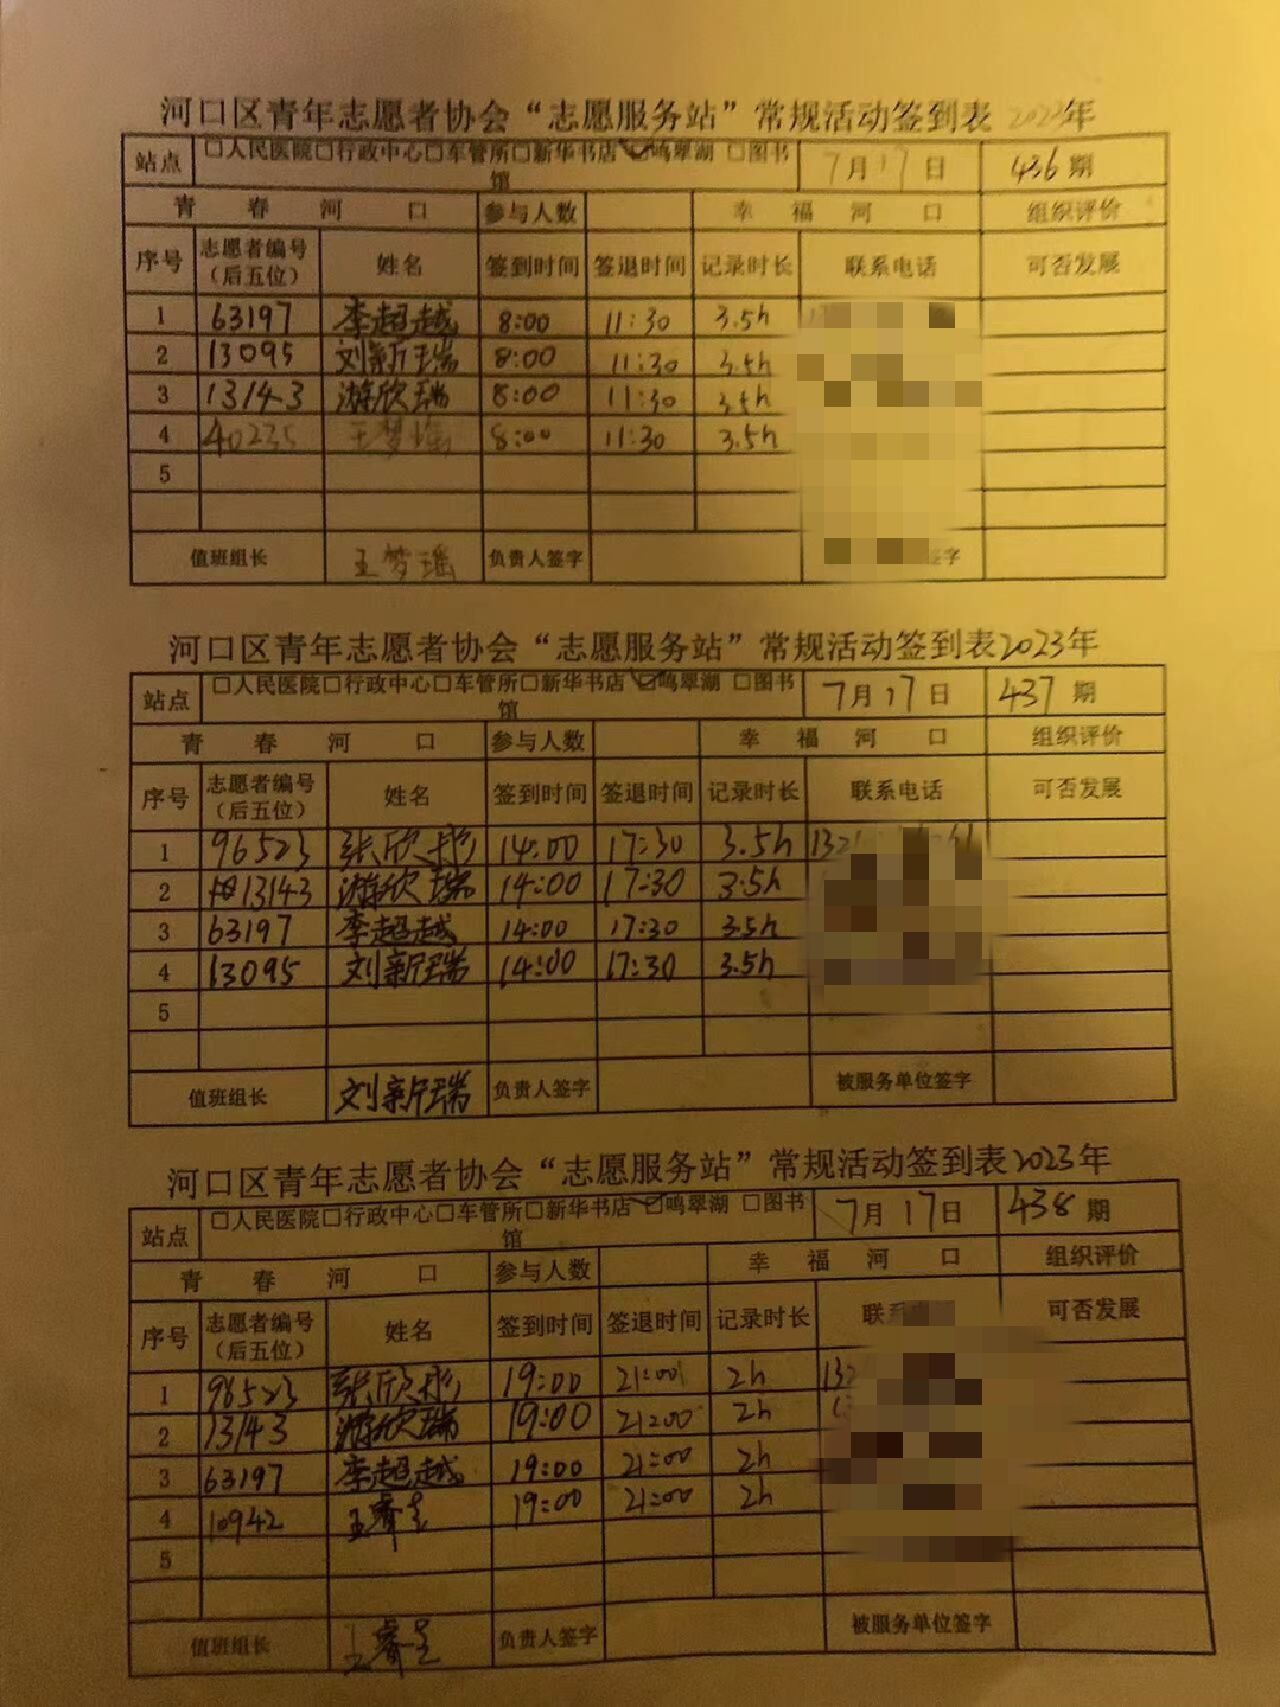 河口区青年志愿者协会“志愿服务站”常规活动签到表 2023年
站点 □人民医院□行政中心□车管所□新华书店☑鸣翠湖 □图书馆 7月17日 436期
青春河口 参与人数 幸福河口 组织评价
序号 志愿者编号（后五位） 姓名 签到时间 签退时间 记录时长 联系电话 可否发展
1 63197 李超越 8:00 11:30 3.5h
2 13095 刘新瑞 8:00 11:30 3.5h
3 13143 游欣瑞 8:00 11:30 3.5h
4 40235 王梦瑶 8:00 11:30 3.5h
5
值班组长 王梦瑶 负责人签字 签字
河口区青年志愿者协会“志愿服务站”常规活动签到表2023年
站点 □人民医院□行政中心□车管所□新华书店☑鸣翠湖 □图书馆 7月17日 437期
青春河口 参与人数 幸福河口 组织评价
序号 志愿者编号（后五位） 姓名 签到时间 签退时间 记录时长 联系电话 可否发展
1 96523 张欣彤 14:00 17:30 3.5h
2 13143 游欣瑞 14:00 17:30 3.5h
3 63197 李超越 14:00 17:30 3.5h
4 13095 刘新瑞 14:00 17:30 3.5h
5
值班组长 刘新瑞 负责人签字 被服务单位签字
河口区青年志愿者协会“志愿服务站”常规活动签到表2023年
站点 □人民医院□行政中心□车管所□新华书店☑鸣翠湖 □图书馆 7月17日 438期
青春河口 参与人数 幸福河口 组织评价
序号 志愿者编号（后五位） 姓名 签到时间 签退时间 记录时长 联 可否发展
1 96523 张欣彤 19:00 21:00 2h
2 13143 游欣瑞 19:00 21:00 2h
3 63197 李超越 19:00 21:00 2h
4 10942 19:00 21:00 2h
5
值班组长 负责人签字 被服务单位签字